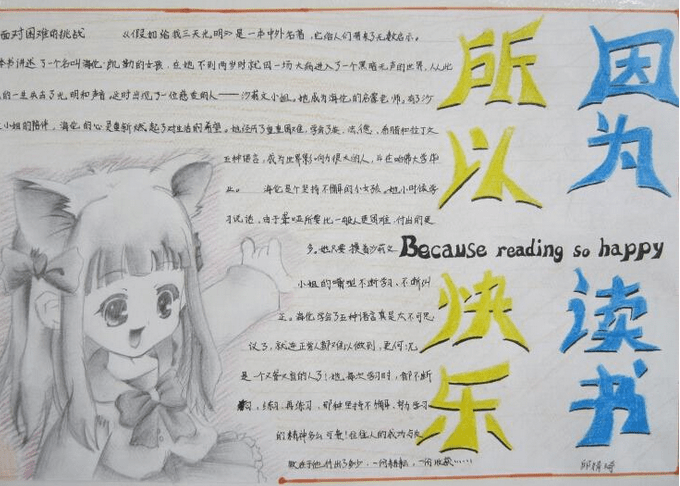 因为
读书
所以
快乐
Because reading so happy
面对困难的挑战 《假如给我三天光明》是一本中外名著,它给人们带来了无数启示。
本书讲述了一个名叫海伦·凯勒的女孩,在她不到两岁时就因一场大病进入了一个黑暗无声的世界,从此
的一生失去了光明和声音。这时出现了一位慈爱的人——沙莉文小姐。她成为海伦的启蒙老师。有了沙
小姐的陪伴,海伦的心里重新燃起了对生活的希望。她经历了重重困难,学会了英、法、德、希腊和拉丁文
五种语言,成为世界影响为很大的人,并在哈佛大学毕
业。 海伦是个坚持不懈的女孩。她小时候学
习说话,由于聋哑所要比一般人更困难,付出的更
多。她只要摸着沙莉文
小姐的嘴型不断学习、不断纠
正。海伦学会了五种语言真是太不可思
议了,就连正常人都难以做到,更何况
是一个又聋又盲的人了!她每次学习时,都不断
练习,再练习,那种坚持不懈、努力学习
的精神多么可贵!往往人的成功与失
败在于他付出了多少,一份耕耘,一份收获……